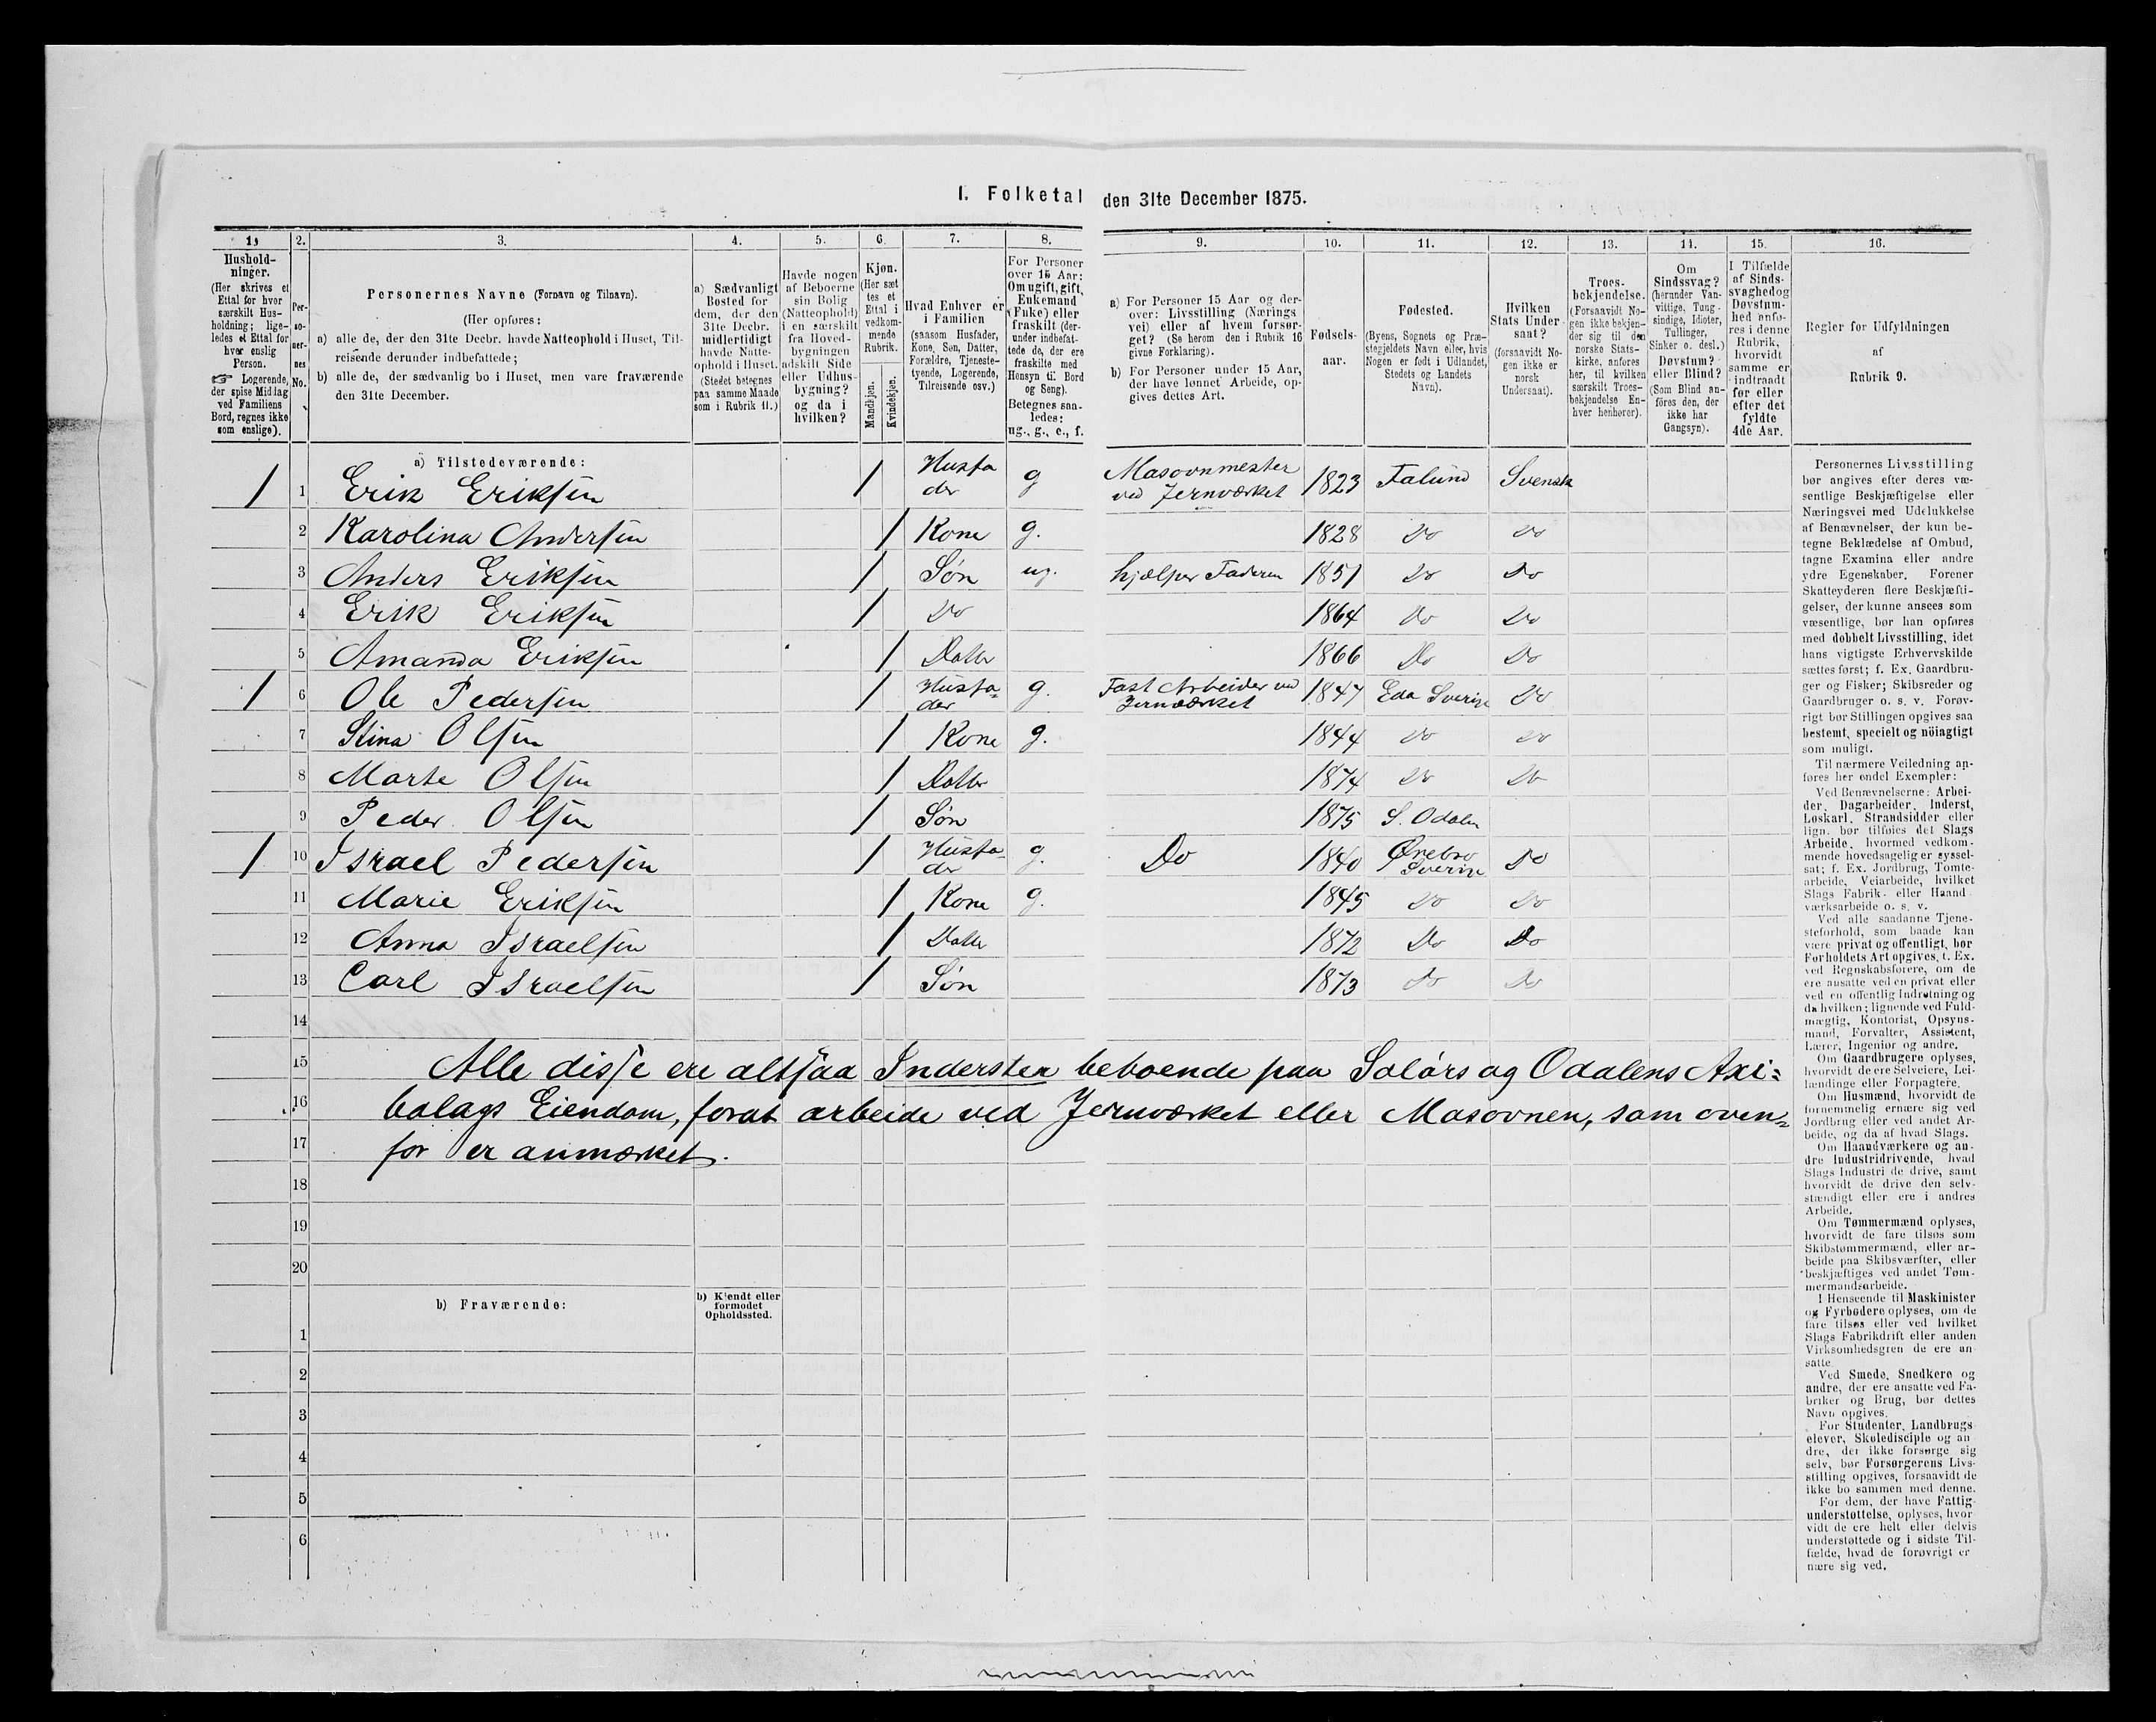 I. Folketal den 31te December 1875.
1. 2. 3. 4. 5. 6. 7. 8. 9. 10. 11. 12. 13. 14. 15. 16.
Husholdninger.
(Her skrives et
Ettal for hver
særskilt Hus-
holdning; lige-
ledes et Ettal for
hver enslig
Person.
☞ Logerende,
der spise Middag
ved Familiens
Bord, regnes ikke
som enslige).
Per-
so-
ner-
nes
No.
Personernes Navne (Fornavn og Tilnavn).
(Her opføres:
a) alle de, der den 31te Decbr. havde Natteophold i Huset, Til-
reisende derunder indbefattede;
b) alle de, der sædvanlig bo i Huset, men vare fraværende
den 31te December.
a) Sædvanligt
Bosted for
dem, der den
31te Decbr.
midlertidigt
havde Natte-
ophold i Huset.
(Stedet betegnes
paa samme Maade
som i Rubrik 11.)
Havde nogen
af Beboerne
sin Bolig
(Natteophold)
i en særskilt
fra Hoved-
bygningen
adskilt Side
eller Udhus-
bygning?
og da i
hvilken?
Kjøn.
(Her sæt
tes et
Ettal i
vedkom-
mende
Rubrik.
Mandkjøn.
Kvindekjøn.
Hvad Enhver er
i Familien
(saasom Husfader,
Kone, Søn, Datter,
Forældre, Tjeneste-
tyende, Logerende,
Tilreisende osv.)
For Personer
over 15 Aar:
Om ugift, gift,
Enkemand
(Enke) eller
fraskilt (der-
under indbefat-
tede de, der ere
fraskilte med
Hensyn til Bord
og Seng).
Betegnes saa-
ledes:
ug., g., e., f.
a) For Personer 15 Aar og der-
over: Livsstilling (Nærings
vei) eller af hvem forsør-
get? (Se herom den i Rubrik 16
givne Forklaring).
b) For Personer under 15 Aar,
der have lønnet Arbeide, op-
gives dettes Art.
Fødsels-
aar.
Fødested.
(Byens, Sognets og Præ-
stegjeldets Navn eller, hvis
Nogen er født i Udlandet,
Stedets og Landets
Navn).
Hvilken
Stats Under-
saat?
(forsaavidt No-
gen ikke er
norsk
Undersaat).
Troes-
bekjendelse.
(Forsaavidt No-
gen ikke bekjen-
der sig til den
norske Stats-
kirke, anføres
her, til hvilken
særskilt Troes-
bekjendelse En-
hver henhører).
Om
Sindssvag?
(herunder Van-
vittige, Tung-
sindige, Idioter,
Tullinger,
Sinker o. desl.)
Døvstum?
eller Blind?
(Som Blind an-
føres den, der
ikke har
Gangsyn).
I Tilfælde
af Sinds-
svaghed og
Døvstum-
hed anfø-
res i denne
Rubrik,
hvorvidt
samme er
indtraadt
før eller
efter det
fyldte
4de Aar.
Regler for Udfyldningen
af
Rubrik 9.
a) Tilstedeværende:
1 1 Erik Eriksen 1 Husfader g Masovnmester ved Jernværket 1823 Falund Svensk
2 Karolina Andersen 1 Kone g. 1828 Do Do
3 Anders Eriksen 1 Søn ug. hjælper Faderen 1851 Do Do
4 Erik Eriksen 1 Do 1864 Do Do
5 Amanda Eriksen 1 Datter 1866 Do Do
1 6 Ole Pedersen 1 Husfader g. Fast Arbeider ved Jernværket 1847 Eda Sverige Do
7 Stina Olsen 1 Kone g. 1844 Do Do
8 Marte Olsen 1 Datter 1874 Do Do
9 Peder Olsen 1 Søn 1875 S. Odalen
1 10 Israel Pedersen 1 Husfader g. Do 1840 Ørebro Sverige Do
11 Marie Eriksen 1 Kone g. 1845 Do Do
12 Anna Israelsen 1 Datter 1872 Do Do
13 Carl Israelsen 1 Søn 1873 Do Do
14
15 Alle disse ere altsaa Inderster beboende paa Solørs og Odalens Axi-
16 bolags Eiendom, forat arbeide ved Jernværket eller Masovnen, som oven-
17 for er anmærket.
18
19
20
b) Fraværende:
b) Kjendt eller
formodet
Opholdssted.
1
2
3
4
5
6
Personernes Livsstilling
bør angives efter deres væ-
sentlige Beskjæftigelse eller
Næringsvei med Udelukkelse
af Benævnelser, der kun be-
tegne Beklædelse af Ombud,
tagne Examina eller andre
ydre Egenskaber. Forener
Skatteyderen flere Beskjæfti-
gelser, der kunne ansees som
væsentlige, bør han opføres
med dobbelt Livsstilling, idet
hans vigtigste Erhvervskilde
sættes først; f. Ex. Gaardbru-
ger og Fisker; Skibsreder og
Gaardbruger o. s. v. Forøv-
rigt bør Stillingen opgives saa
bestemt, specielt og nöiagtigt
som muligt.
Til nærmere Veiledning an-
føres her endel Exempler:
Ved Benævnelserne: Arbei-
der, Dagarbeider, Inderst,
Løskarl, Strandsidder eller
lign. bør tilføies det Slags
Arbeide, hvormed vedkom-
mende hovedsagelig er syssel-
sat; f. Ex. Jordbrug, Tomte-
arbeide, Veiarbeide, hvilket
Slags Fabrik- eller Haand-
værksarbeide o. s. v.
Ved alle saadanne Tjene-
steforhold, som baade kan
være privat og offentligt, bør
Forholdets Art opgives, t. Ex.
ved Regnskabsførere, om de
ere ansatte ved en privat eller
ved en offentlig Indretning og
da hvilken; lignende ved Fuld-
mægtig, Kontorist, Opsyns-
mand, Forvalter, Assistent,
Lærer, Ingeniør og andre.
Om Gaardbrugere oplyses,
hvorvidt de ere Selveiere, Lei-
lændinge eller Forpagtere.
Om Husmænd, hvorvidt de
fornemmelig ernære sig ved
Jordbrug eller ved andet Ar-
beide, og da af hvad Slags.
Om Haandværkere og an-
dre Industridrivende, hvad
Slags Industri de drive, samt
hvorvidt de drive den selv-
stændigt eller ere i andres
Arbeide.
Om Tømmermænd oplyses,
hvorvidt de fare tilsøs som
Skibstømmermænd, eller ar-
beide paa Skibsværfter, eller
beskjæftiges ved andet Tøm-
mermandsarbeide.
I Henseende til Maskinister
og Fyrbødere oplyses, om de
fare tilsøs eller ved hvilket
Slags Fabrikdrift eller anden
Virksomhedsgren de ere an-
satte.
Ved Smede, Snedkere og
andre, der ere ansatte ved Fa-
briker og Brug, bør dettes
Navn opgives.
For Studenter, Landbrugs-
elever, Skoledisciple og an-
dre, der ikke forsørge sig
selv, bør Forsørgerens Livs-
stilling opgives, forsaavidt de
ikke bo sammen med denne.
For dem, der have Fattig-
understøttelse, oplyses, hvor-
vidt de ere helt eller delvis
understøttede og i sidste Til-
fælde, hvad de forøvrigt er-
nære sig ved.